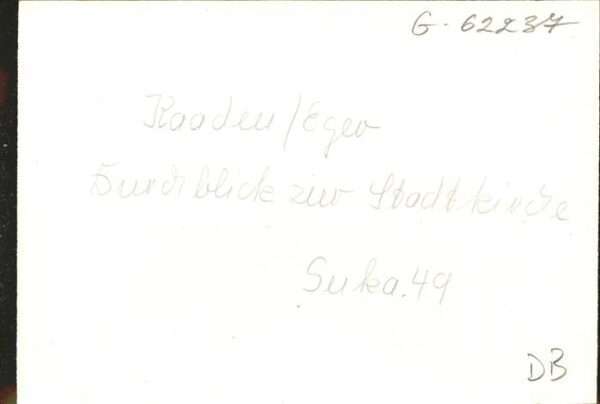 G. 62237
Kaaden/Eger
Durchblick zur Stadtkirche
Suka.49
DB